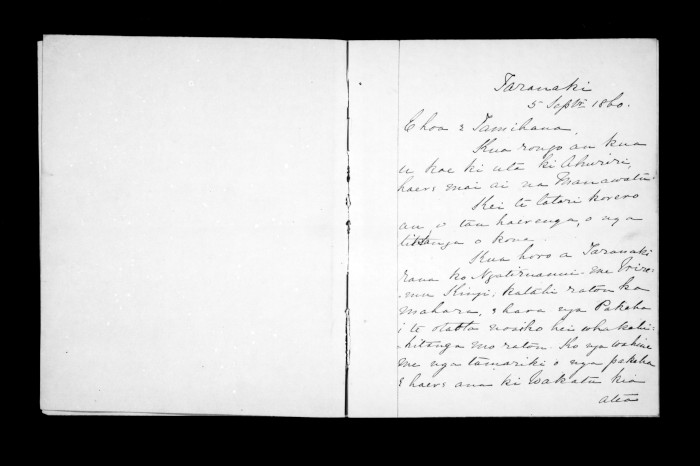 Taranaki
5 Septr 1860.
E hoa e Tamihana,
Kua rongo au kua
u koe ki uta ki Ahuriri,
haere mai ai na Manawatu
Kei te tatari korero
au, o tau haerenga, o nga
tikanga o kona.
Kua horo a Taranaki
raua ko Ngatiruanui me Wire-
-mu Kingi, katahi ratou ka
mahara, e hara nga Pakeha
i te
hei whakati-
-kitanga mo ratou. Ko nga wahine
me nga tamariki o nga pakeha
e haere ana ki Wakatu kia
atea